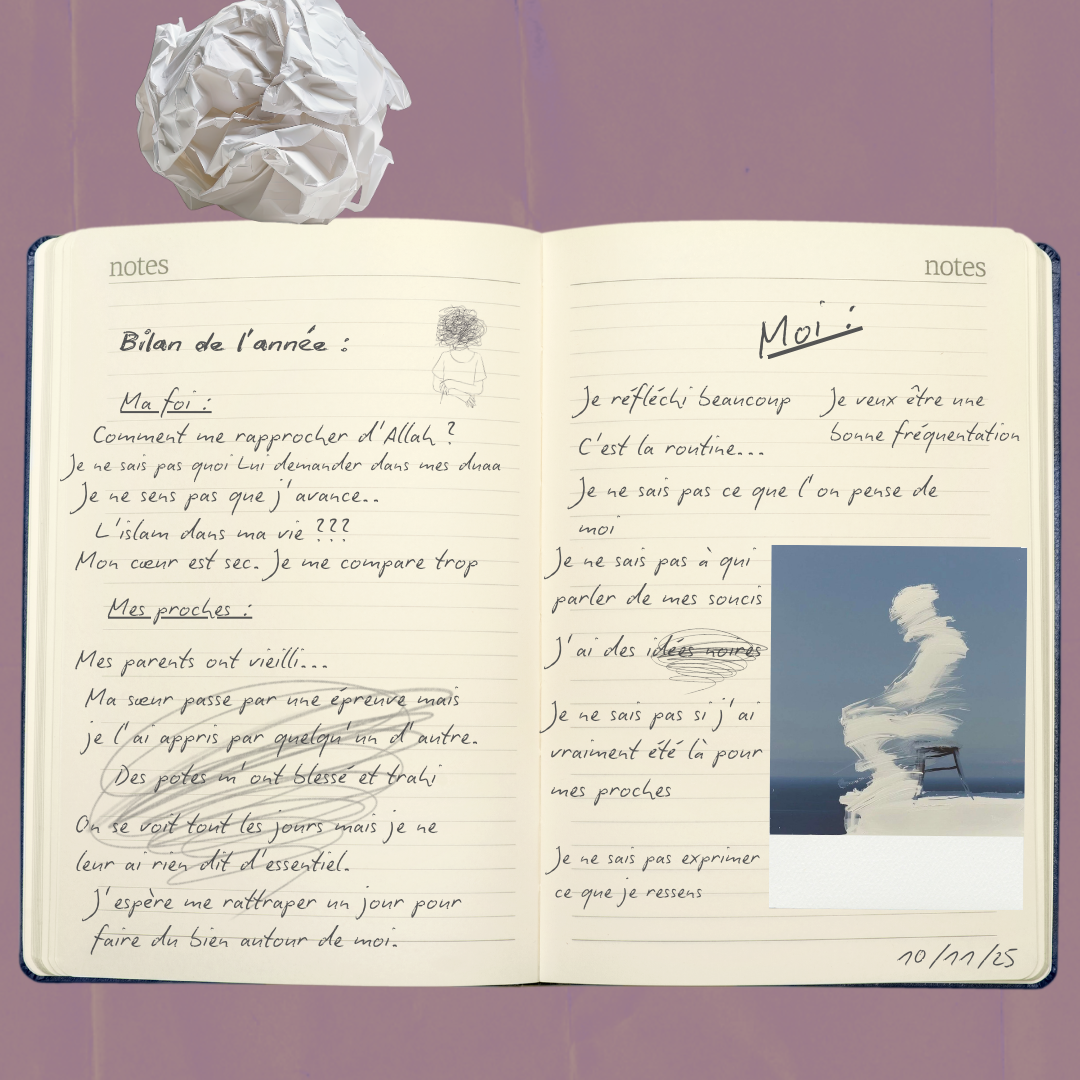 notes
Bilan de l'année :
Ma foi :
Comment me rapprocher d'Allah ?
Je ne sais pas quoi Lui demander dans mes duaa
Je ne sens pas que j'avance..
L'islam dans ma vie ???
Mon cœur est sec. Je me compare trop
Mes proches :
Mes parents ont vieilli...
Ma sœur passe par une épreuve mais
je l'ai appris par quelqu'un d'autre.
Des potes m'ont blessé et trahi
On se voit tout les jours mais je ne
leur ai rien dit d'essentiel.
J'espère me rattraper un jour pour
faire du bien autour de moi.
notes
Moi :
Je réfléchi beaucoup
Je veux être une
bonne fréquentation
C'est la routine...
Je ne sais pas ce que l'on pense de
moi
Je ne sais pas à qui
parler de mes soucis
J'ai des idées noires
Je ne sais pas si j'ai
vraiment été là pour
mes proches
Je ne sais pas exprimer
ce que je ressens
10/11/25